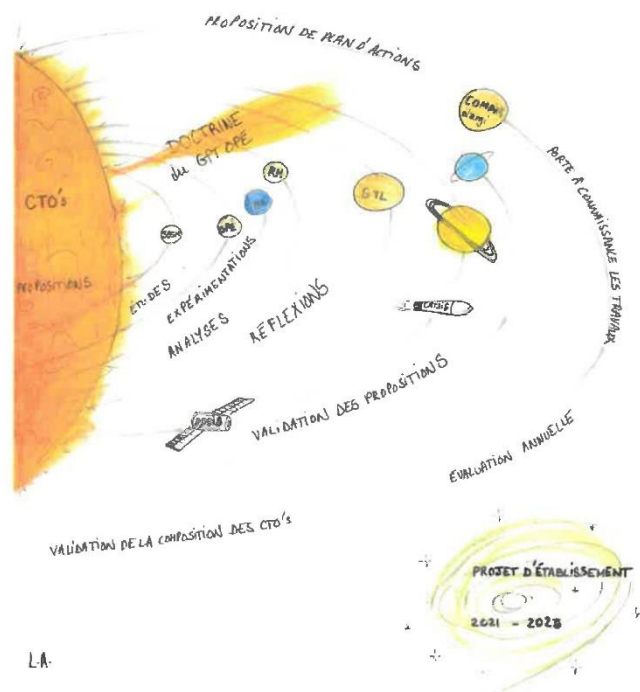 PROPOSITION DE PLAN D'ACTIONS
DOCTRINE
du GPT OPE
CTO's
PROPOSITIONS
RH
OPE
GTL
PORTE À CONNAISSANCE LES TRAVAUX
ETUDES
EXPÉRIMENTATIONS
ANALYSES
RÉFLEXIONS
VALIDATION DES PROPOSITIONS
EVALUATION ANNUELLE
VALIDATION DE LA COMPOSITION DES CTO's
PROJET D'ÉTABLISSEMENT
2021 - 2023
L.A.